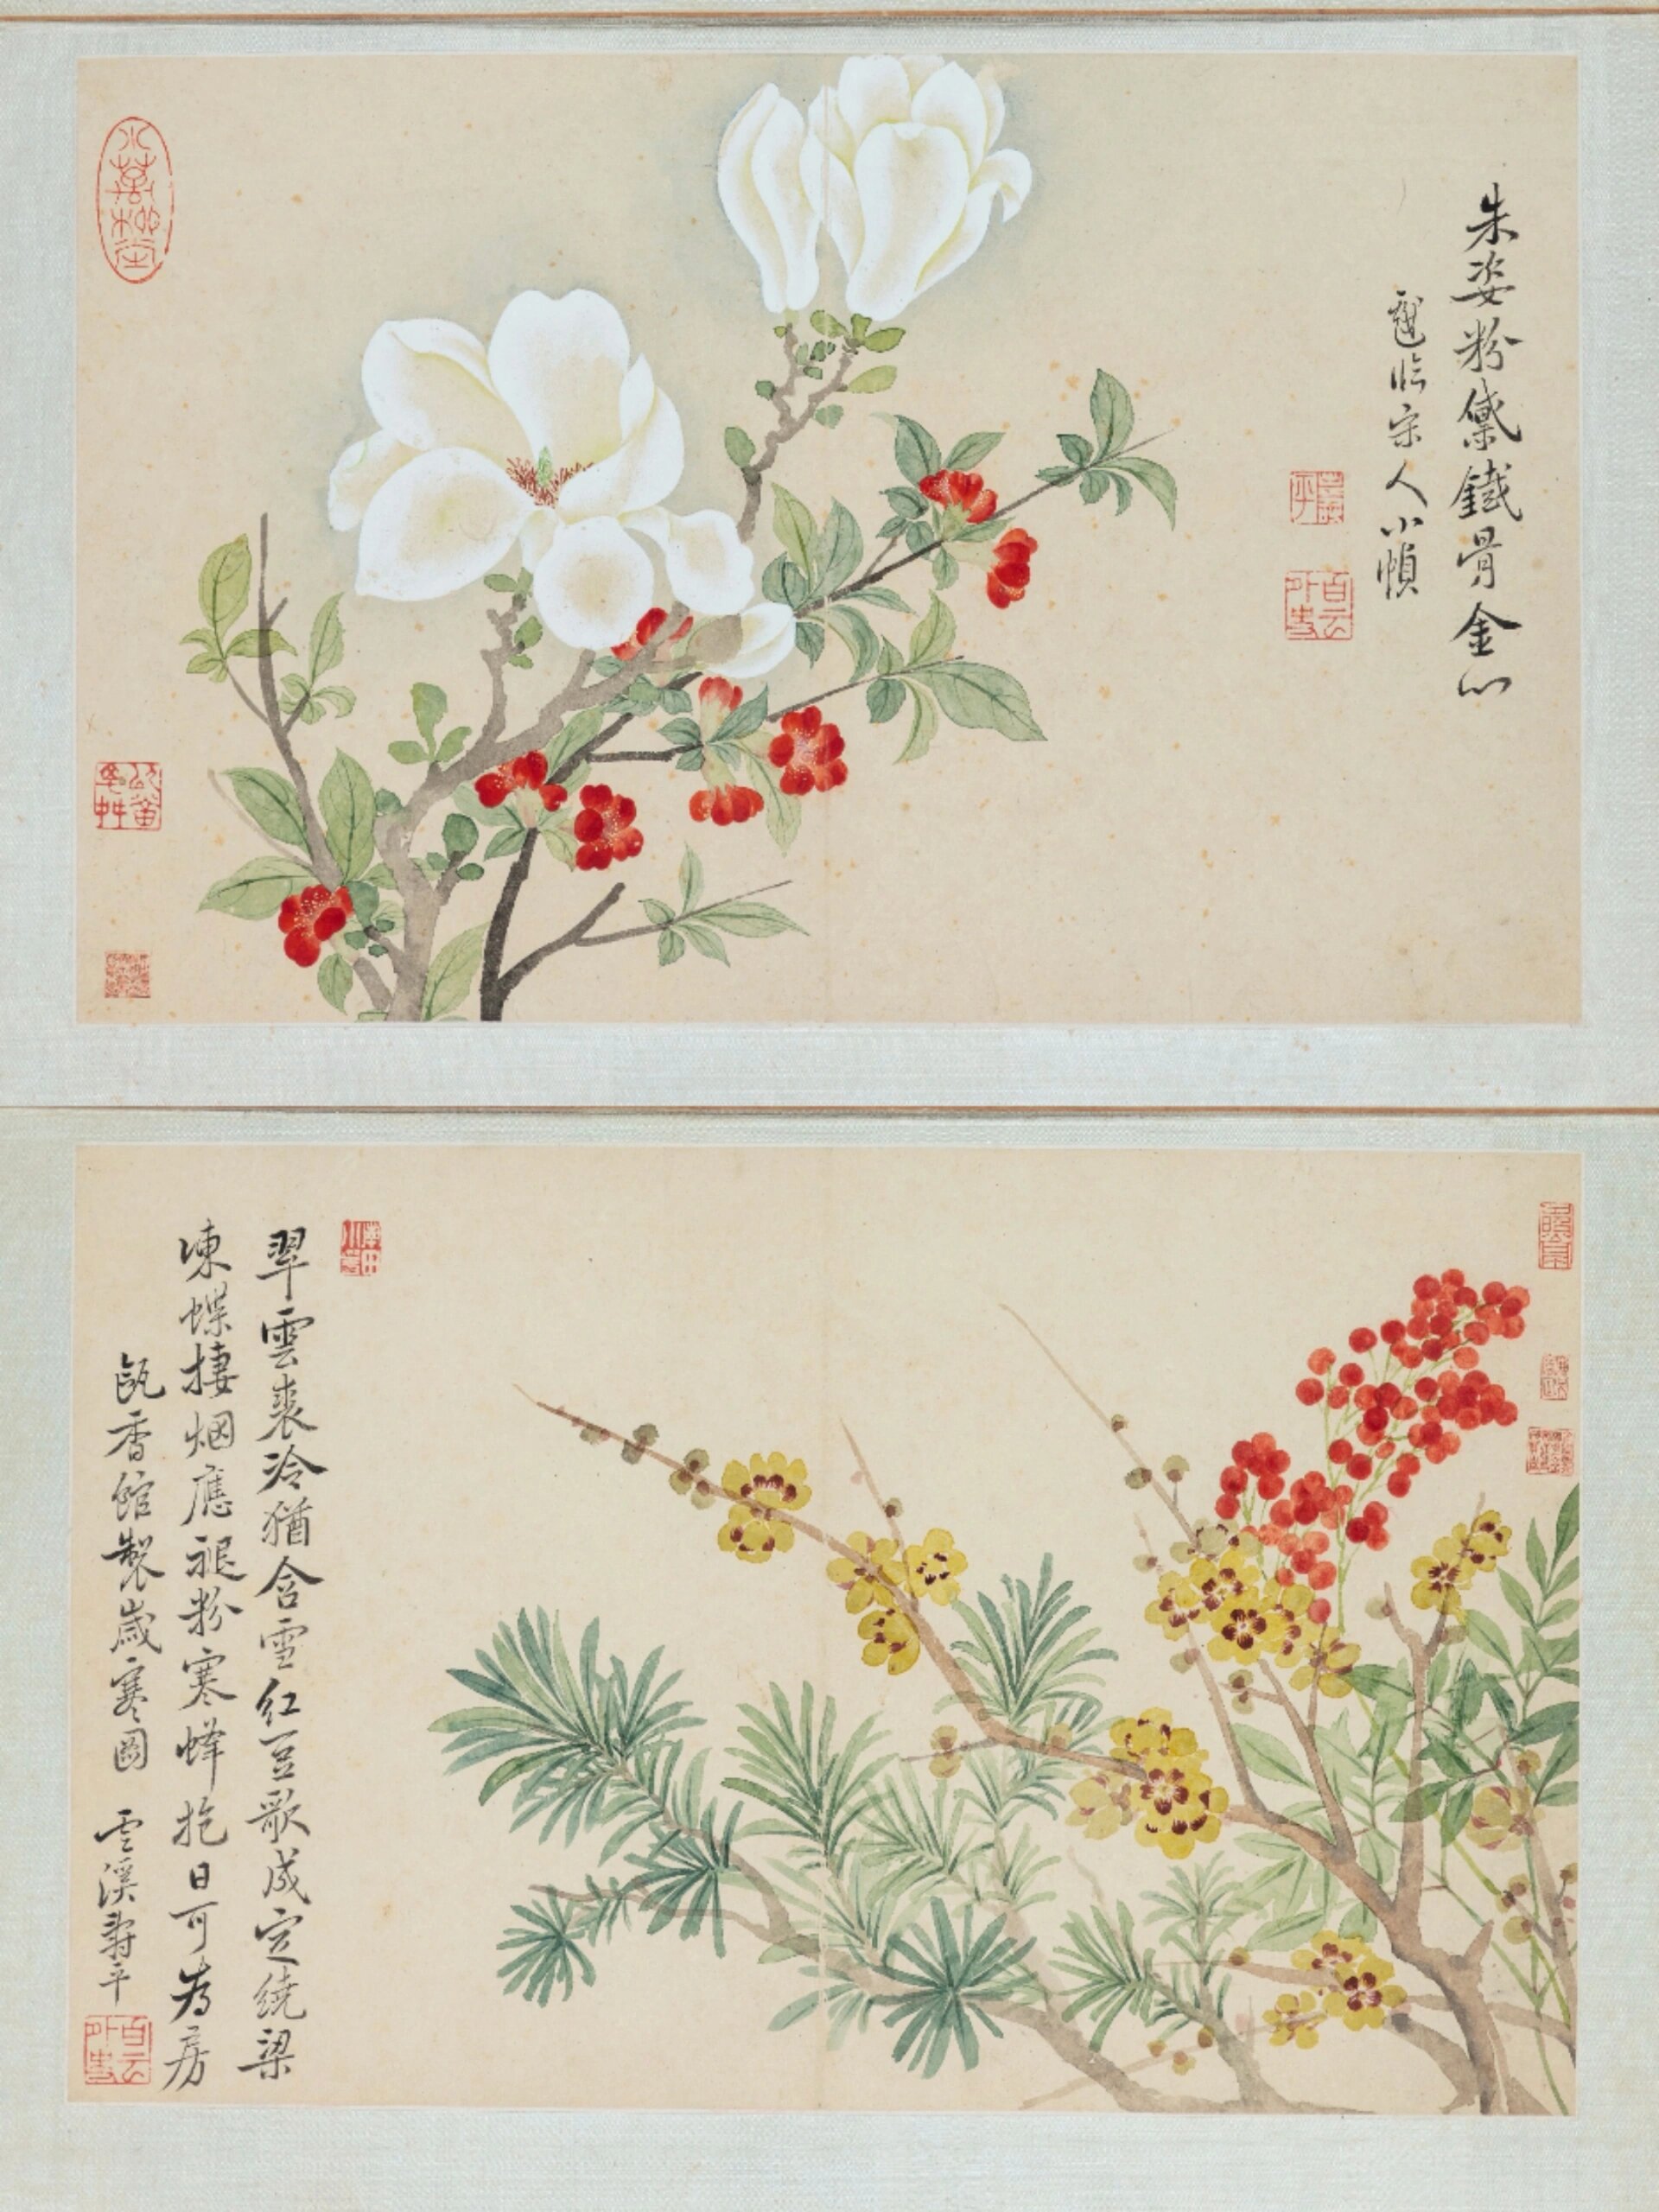 朱姿粉黛鐵骨金心
臨宋人小幀
壽平
白雲外史
翠雲裘冷猶含雪紅豆歌成定繞梁
凍蝶棲烟應褪粉寒蜂抱日可為房
甌香館製歲寒圖 雲溪壽平
白雲外史